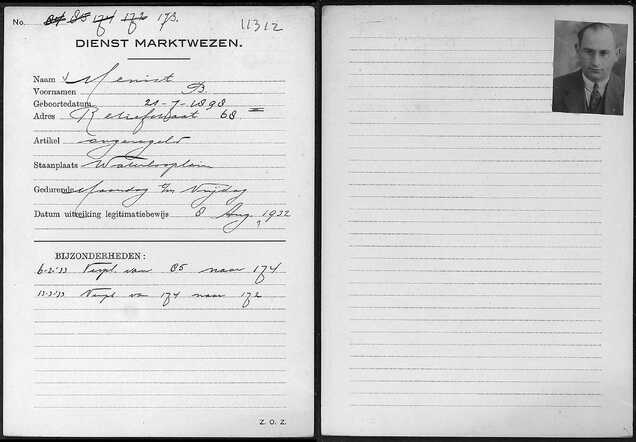 No. 84 85 174 172 173. 11312
DIENST MARKTWEZEN.
Naam Menist
Voornamen B.
Geboortedatum 21-7-1898
Adres 68
Artikel ongeregeld
Staanplaats Waterlooplein
Gedurende Maandag t/m Vrijdag
Datum uitreiking legitimatiebewijs 8 Aug. 1922
?
BIJZONDERHEDEN:
6-2-'33 Verpl. van 85 naar 174
13-3-'33 Verpl van 174 naar 172
Z. O. Z.